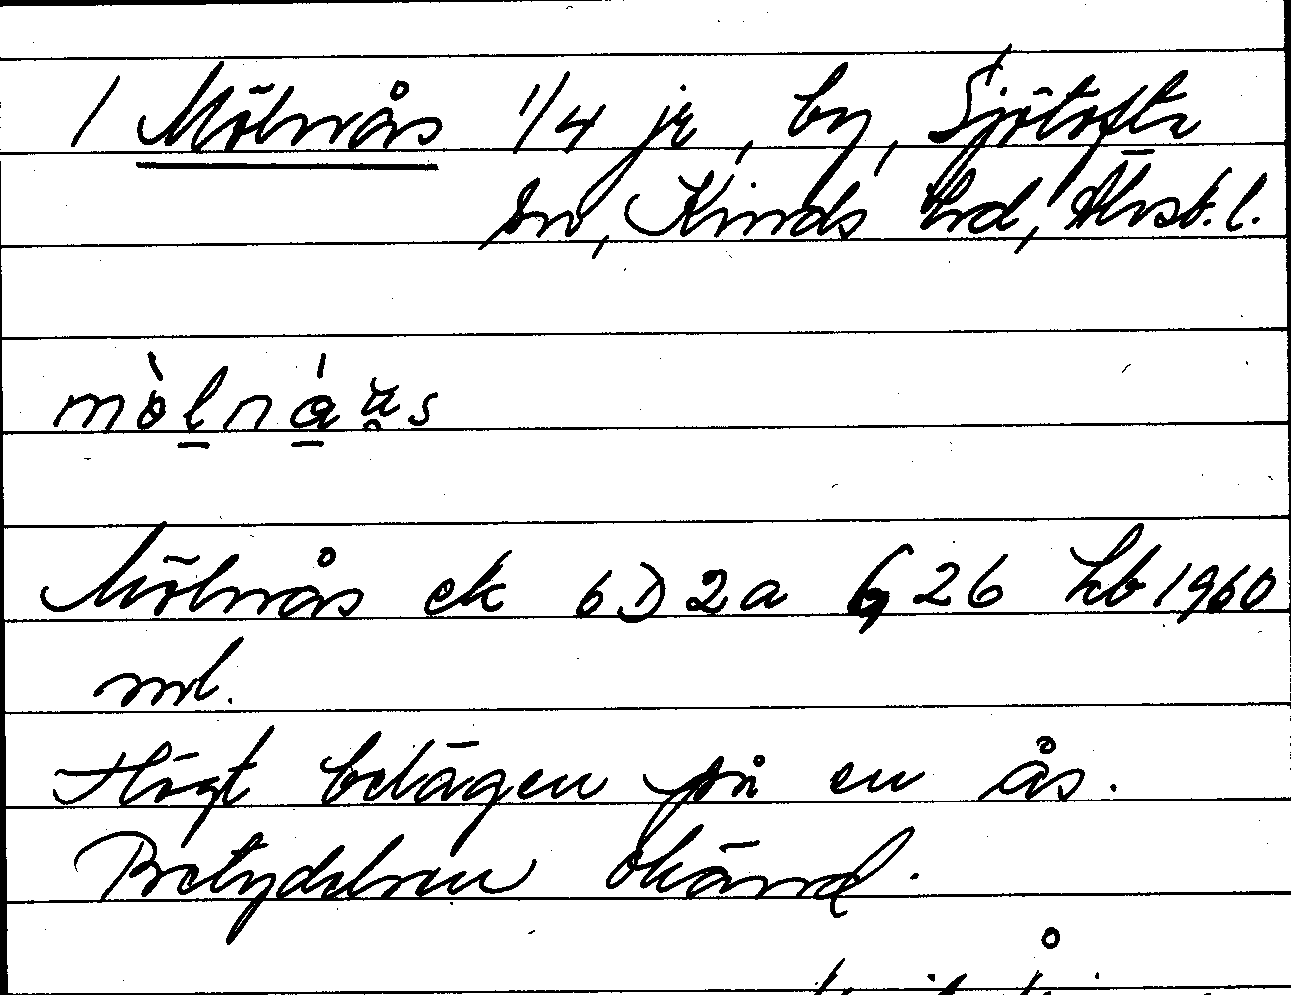 1 Mölnås 1/4 jr, by, Sjötofta
sn, Kinds hd, Älvsb. l.
Mölnås ek 6D2a G 26 hb 1960
ml.
Högt belägen på en ås.
Betydelsen okänd.